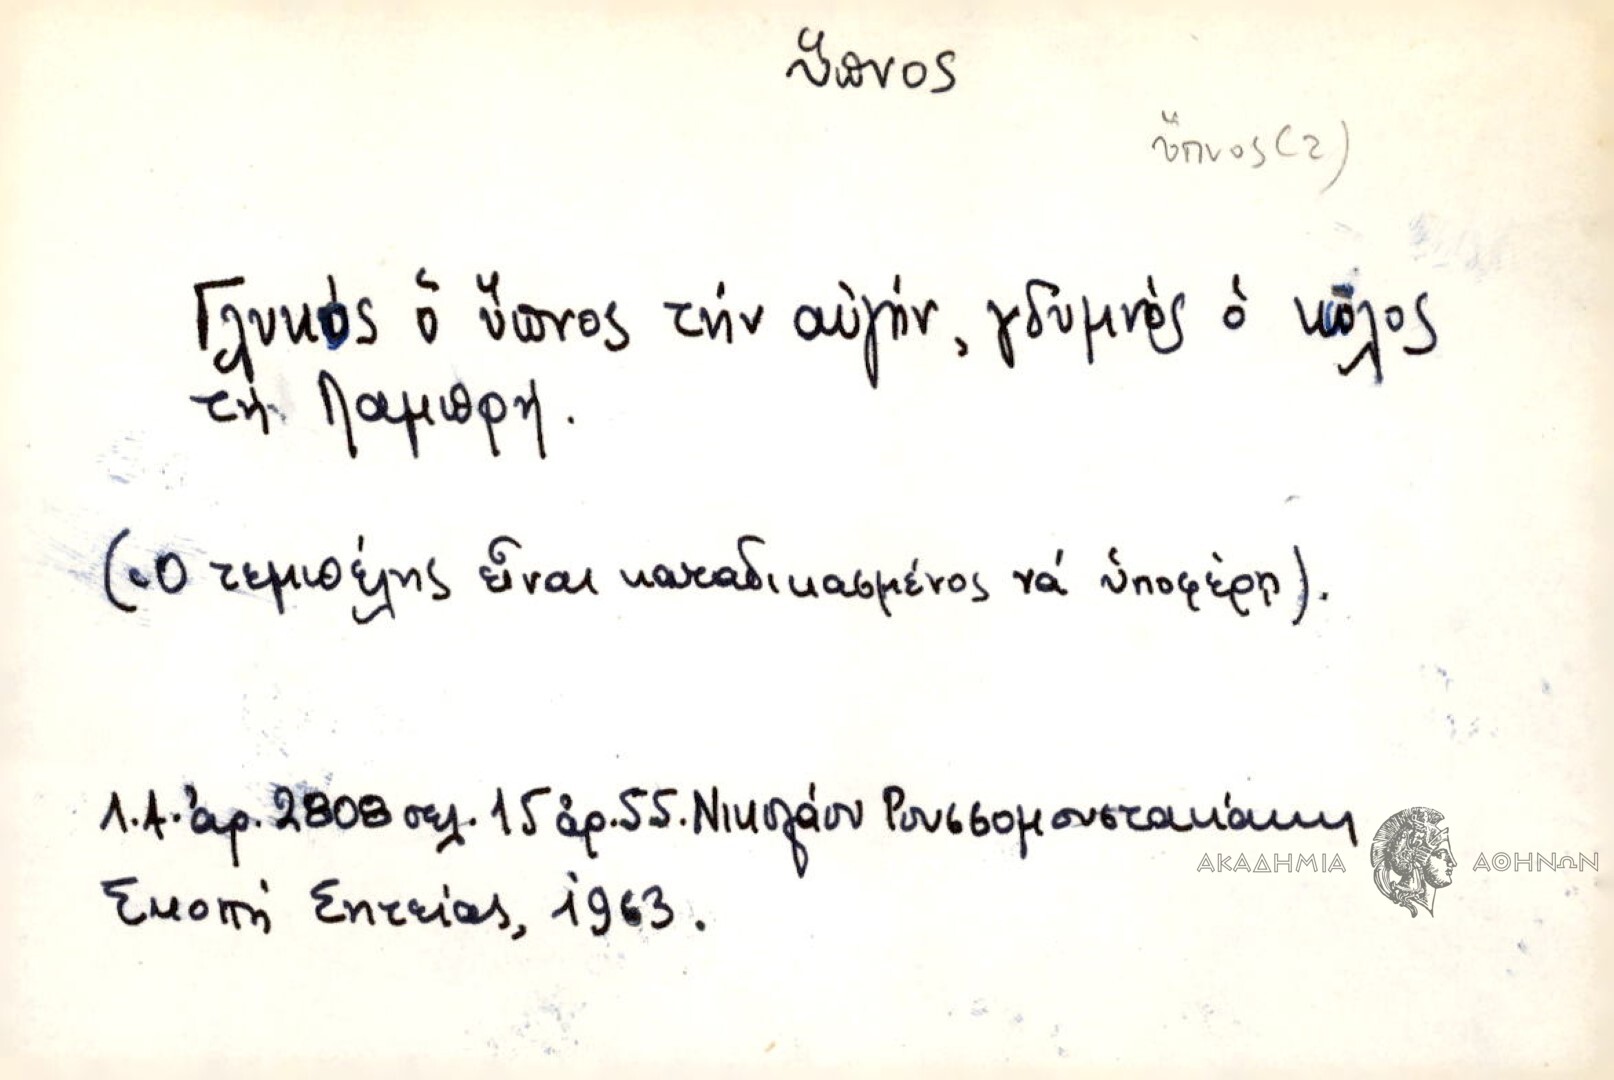 ὕπνος
ὕπνος (2)
Γλυκός ὁ ὕπνος τήν αὐγήν, γδυμνός ὁ κῶλος
τή Λαμπρή.
(Ὁ τεμπέλης εἶναι καταδικασμένος νά ὑποφέρῃ).
Λ.Α. ἀρ. 2808 σελ. 15 ἀρ. 55. Νικολάου Ρουσσομουστακάκη
ΑΚΑΔΗΜΙΑ ΑΘΗΝΩΝ
Σκοπή Σητείας, 1963.